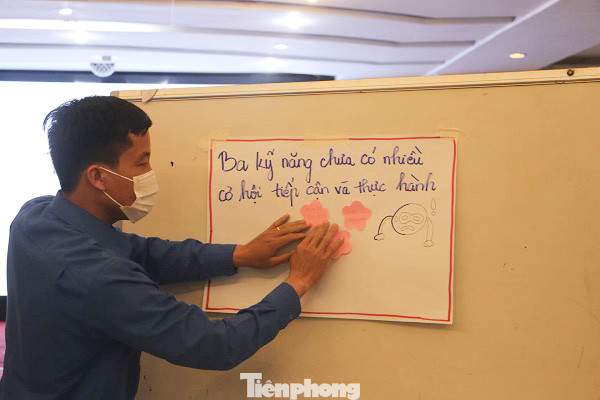 Ba kỹ năng chưa có nhiều
cơ hội tiếp cận và thực hành
Tiênphong